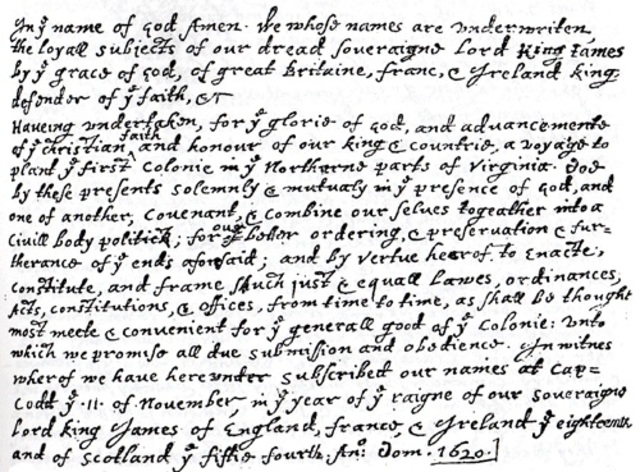 In yͤ name of god Amen. We whose names are underwriten,
the loyall subjects of our dread soveraigne Lord King James
by yͤ grace of god, of great Britaine, franc, & Ireland king,
defender of yͤ faith, &c
Haveing undertaken, for yͤ glorie of god, and advancemente
of yͤ christian faith and honour of our king & countrie, a voyage to
plant yͤ first colonie in yͤ Northerne parts of Virginia. doe
by these presents solemnly & mutualy in yͤ presence of god, and
one of another, covenant, & combine our selves togeather into a
civill body politick; for our better ordering, & preservation & fur=
therance of yͤ ends aforesaid; and by vertue hearof, to enacte,
constitute, and frame shuch just & equall lawes, ordinances,
Acts, constitutions, & offices, from time to time, as shall be thought
most meete & convenient for yͤ generall good of yͤ colonie: unto
which we promise all due submission and obedience. In witnes
wherof we have hereunder subscribed our names at Cap=
Codd yͤ .11. of November, in yͤ year of yͤ raigne of our soveraigne
Lord king James of England, france, & Ireland yͤ eighteenth
and of Scotland yͤ fiftie fourth. Anͦ: Dom. 1620.]